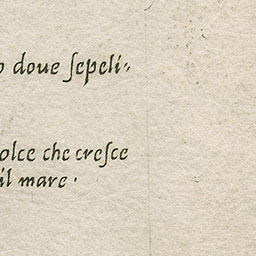 o doue ſepeli=
olce che creſce
il mare ·